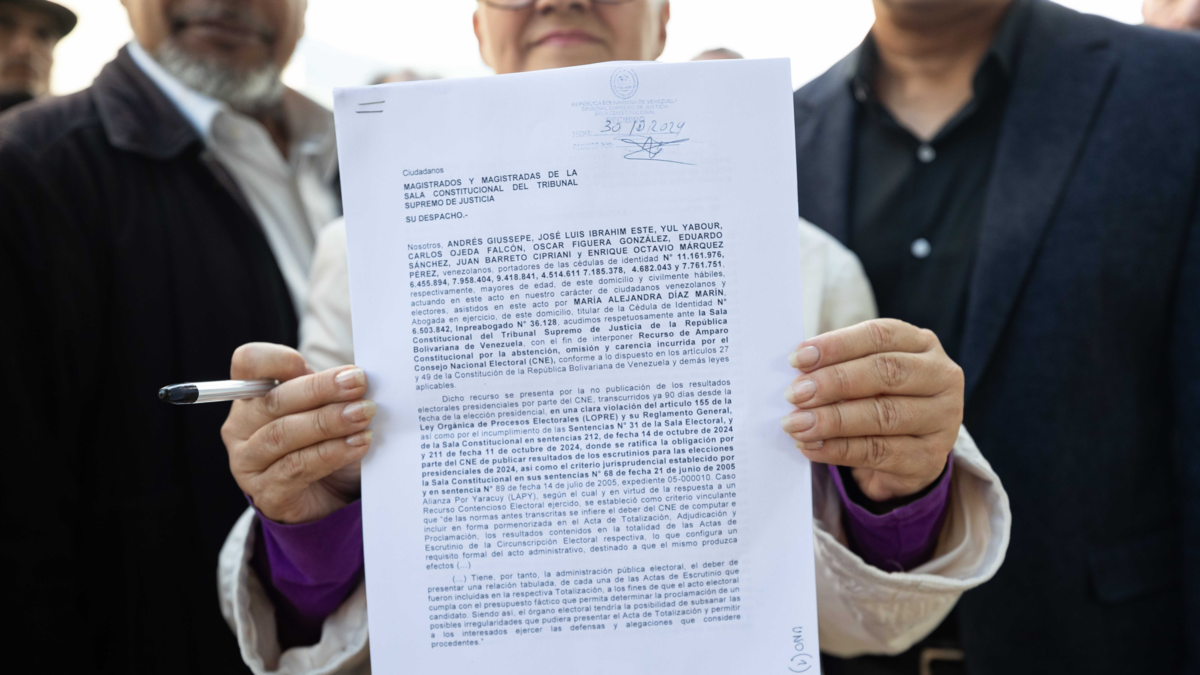 REPÚBLICA BOLIVARIANA DE VENEZUELA
TRIBUNAL SUPREMO DE JUSTICIA
30/10/2024
Ciudadanos
MAGISTRADOS Y MAGISTRADAS DE LA
SALA CONSTITUCIONAL DEL TRIBUNAL
SUPREMO DE JUSTICIA
SU DESPACHO.-
Nosotros, ANDRÉS GIUSSEPE, JOSÉ LUIS IBRAHIM ESTE, YUL YABOUR,
CARLOS OJEDA FALCÓN, OSCAR FIGUERA GONZÁLEZ, EDUARDO
SÁNCHEZ, JUAN BARRETO CIPRIANI y ENRIQUE OCTAVIO MÁRQUEZ
PÉREZ, venezolanos, portadores de las cédulas de identidad N° 11.161.976,
6.455.894, 7.958.404, 9.418.841, 4.514.611 7.185.378, 4.682.043 y 7.761.751,
respectivamente, mayores de edad, de este domicilio y civilmente hábiles,
actuando en este acto en nuestro carácter de ciudadanos venezolanos y
electores, asistidos en este acto por MARÍA ALEJANDRA DÍAZ MARÍN,
Abogada en ejercicio, de este domicilio, titular de la Cédula de Identidad N°
6.503.842, Inpreabogado N° 36.128, acudimos respetuosamente ante la Sala
Constitucional del Tribunal Supremo de Justicia de la República
Bolivariana de Venezuela, con el fin de interponer Recurso de Amparo
Constitucional por la abstención, omisión y carencia incurrida por el
Consejo Nacional Electoral (CNE), conforme a lo dispuesto en los artículos 27
y 49 de la Constitución de la República Bolivariana de Venezuela y demás leyes
aplicables.
Dicho recurso se presenta por la no publicación de los resultados
electorales presidenciales por parte del CNE, transcurridos ya 90 días desde la
fecha de la elección presidencial, en una clara violación del artículo 155 de la
Ley Orgánica de Procesos Electorales (LOPRE) y su Reglamento General,
así como por el incumplimiento de las Sentencias N° 31 de la Sala Electoral, y
de la Sala Constitucional en sentencias 212, de fecha 14 de octubre de 2024
y 211 de fecha 11 de octubre de 2024, donde se ratifica la obligación por
parte del CNE de publicar resultados de los escrutinios para las elecciones
presidenciales de 2024, así como el criterio jurisprudencial establecido por
la Sala Constitucional en sus sentencias N° 68 de fecha 21 de junio de 2005
y en sentencia N° 89 de fecha 14 de julio de 2005, expediente 05-000010. Caso
Alianza Por Yaracuy (LAPY), según el cual y en virtud de la respuesta a un
Recurso Contencioso Electoral ejercido, se estableció como criterio vinculante
que "de las normas antes transcritas se infiere el deber del CNE de computar e
incluir en forma pormenorizada en el Acta de Totalización, Adjudicación y
Proclamación, los resultados contenidos en la totalidad de las Actas de
Escrutinio de la Circunscripción Electoral respectiva, lo que configura un
requisito formal del acto administrativo, destinado a que el mismo produzca
efectos (...)
(...) Tiene, por tanto, la administración pública electoral, el deber de
presentar una relación tabulada, de cada una de las Actas de Escrutinio que
fueron incluidas en la respectiva Totalización, a los fines de que el acto electoral
cumpla con el presupuesto fáctico que permita determinar la proclamación de un
candidato. Siendo así, el órgano electoral tendría la posibilidad de subsanar las
posibles irregularidades que pudiera presentar el Acta de Totalización y permitir
a los interesados ejercer las defensas y alegaciones que considere
procedentes."
UNO (1)